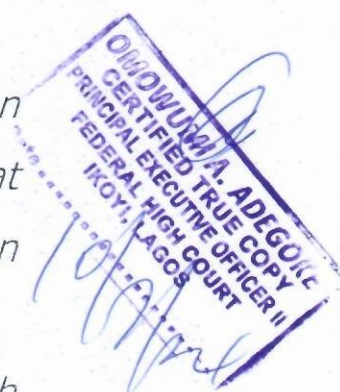 n
at
n
h
OMOWUMI A. ADEGOKE
CERTIFIED TRUE COPY
PRINCIPAL EXECUTIVE OFFICER II
FEDERAL HIGH COURT
IKOYI, LAGOS